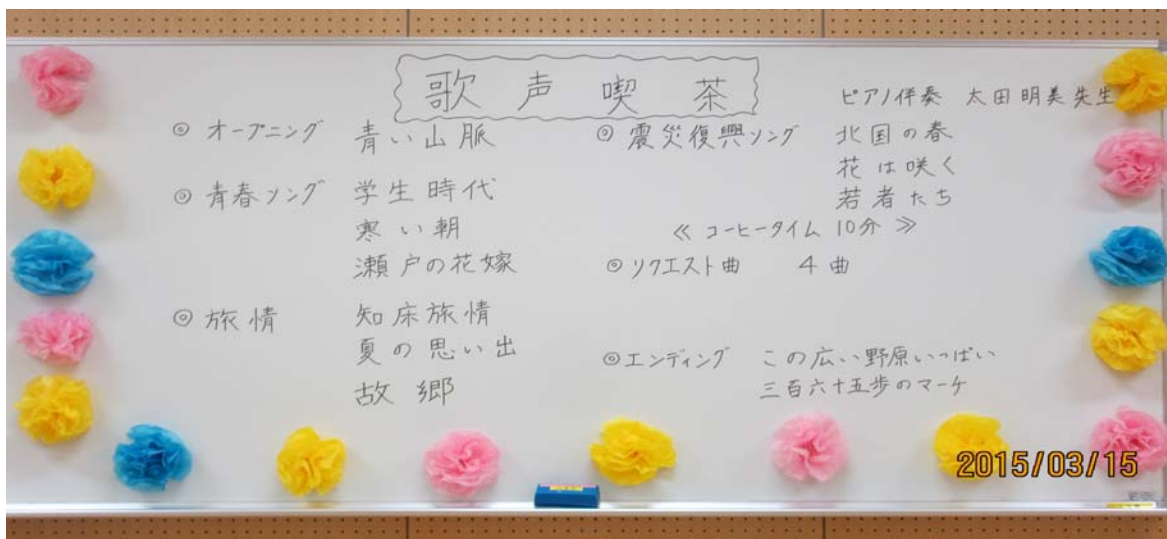 歌声喫茶
ピアノ伴奏 太田明美先生
◎ オープニング 青い山脈
◎ 青春ソング 学生時代
寒い朝
瀬戸の花嫁
◎ 旅情 知床旅情
夏の思い出
故郷
◎ 震災復興ソング 北国の春
花は咲く
若者たち
≪ コーヒータイム 10分 ≫
◎ リクエスト曲 4曲
◎ エンディング この広い野原いっぱい
三百六十五歩のマーチ
2015/03/15